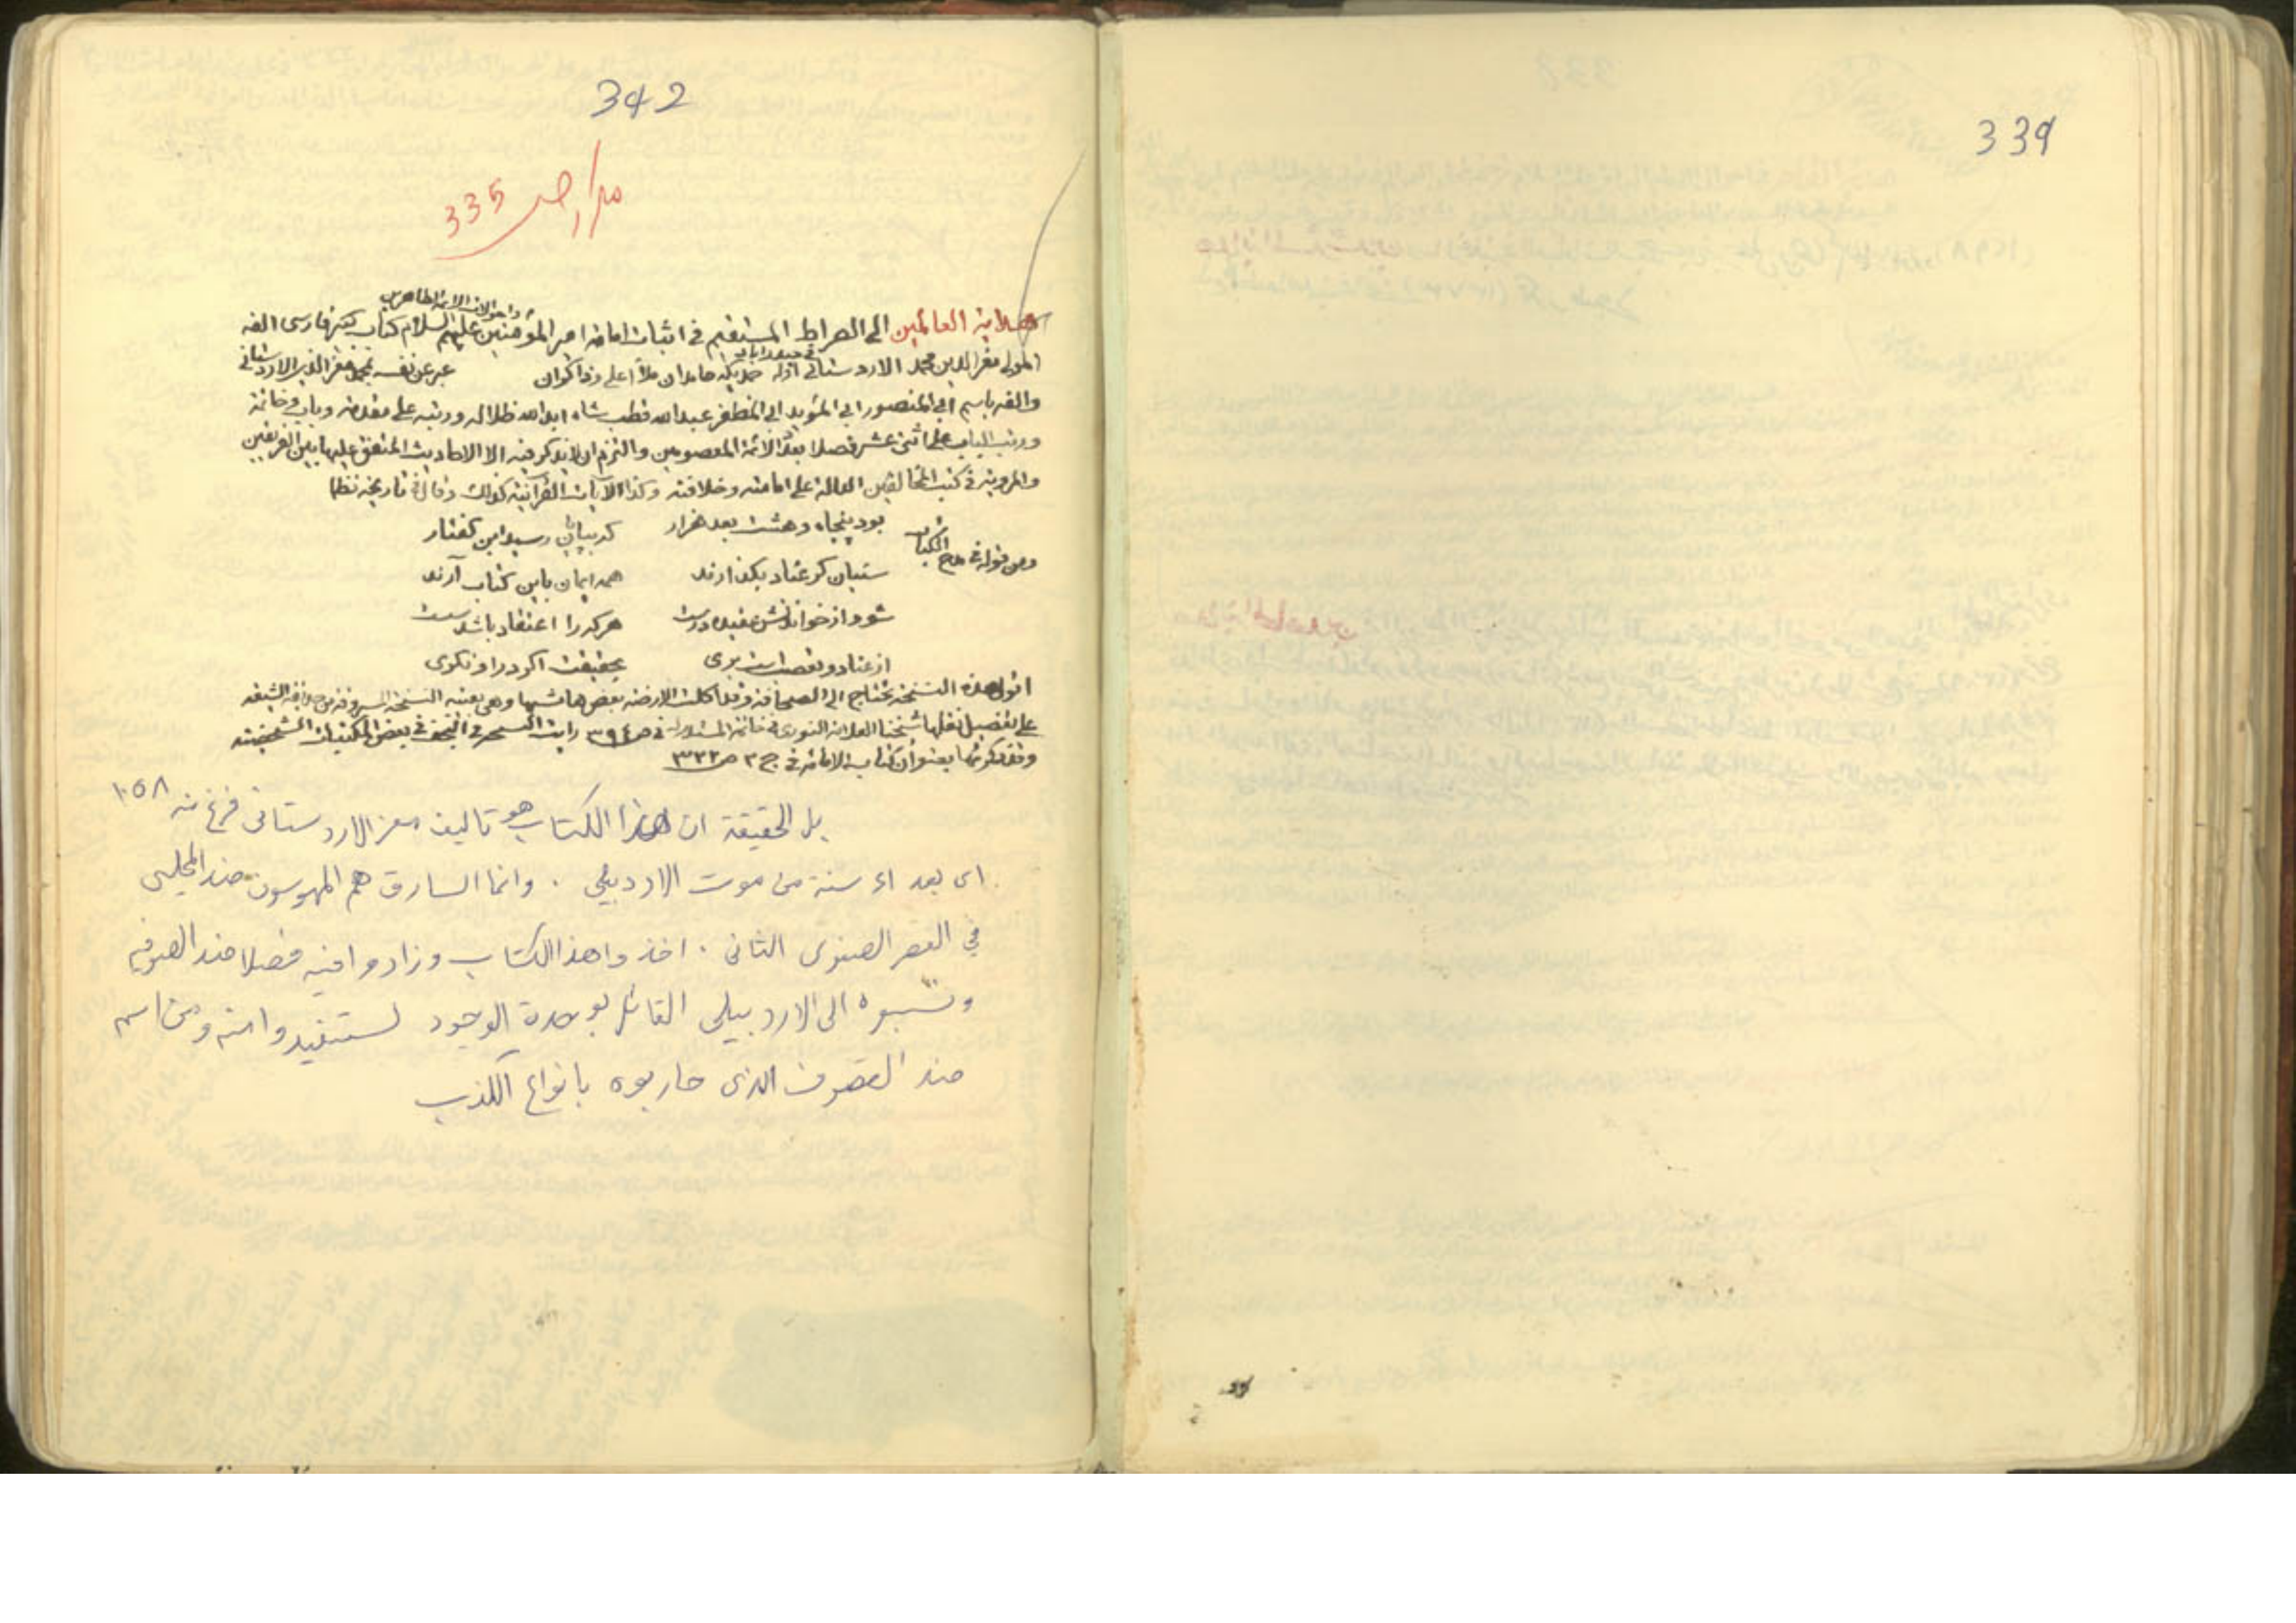 339
342
335
واحوالات الائمة الطاهرين
هداية العالمين الى الصراط المستقيم في اثبات امامة امير المؤمنين عليهم السلام كتاب كبير فارسى الفه
المولى معز الدين محمد الاردستانى في حيدراباد اوله حديكه حامدان ملأ اعلى وذاكران عبر عن نفسه بمحمد معز الدين الاردستانى
والفه باسم ابي المنصور ابي المؤيد ابي المظفر عبد الله قطب شاه ابد الله ظلاله ورتبه على مقدمة وباب وخاتمة
ورتب الباب على اثنى عشر فصلا بعدّ الائمة المعصومين والتزم ان لا يذكر فيه الا الاحاديث المتفق عليها بين الفريقين
والمروية في كتب المخالفين الدالة على امامته وخلافته وكذا الآيات القرآنية كذلك وقال في تاريخه نظما
بود پنجاه وهشت بعد هزار كه بپايان رسيد اين گفتار
ومن قوله في مدح الكتاب
سنيان كر عناد بكذارند همه ايمان باين كتاب آرند
شود از خواندنش عقيده درست هركه را اعتقاد باشد سست
از عناد وتعصب است برى بحقيقت اكر در او نكرى
اقول هذه النسخة تحتاج الى الصحافة وقد اكلت الارضة بعض هامشها وهى بعينه النسخة المسروقة من حديقة الشيعة
على تفصيل نقلها شيخنا العلامة النورى في خاتمة المستدرك في ص ٣٩٤ رايت النسخة في النجف في بعض المكتبات الشخصية
وقد ذكرتها بعنوان كتاب الامامة في ج ٢ ص ٣٣٢
بل الحقيقة ان هذا الكتاب هو تاليف معز الاردستانى فرغ منه ١٠٥٨
اى بعد سنة من موت الاردبيلى . وانما السارق هم المهوسون ضد المجلسى
في العصر الصفوى الثانى . اخذوا هذا الكتاب وزادوا فيه فصلا ضد الصوفية
ونسبوه الى الاردبيلى القائل بوحدة الوجود لستفيدوا منه ومن اسمه
ضد التصوف الذى حاربوه بانواع الكذب